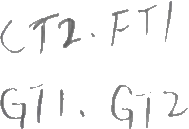 CT2. FT1
GT1. GT2